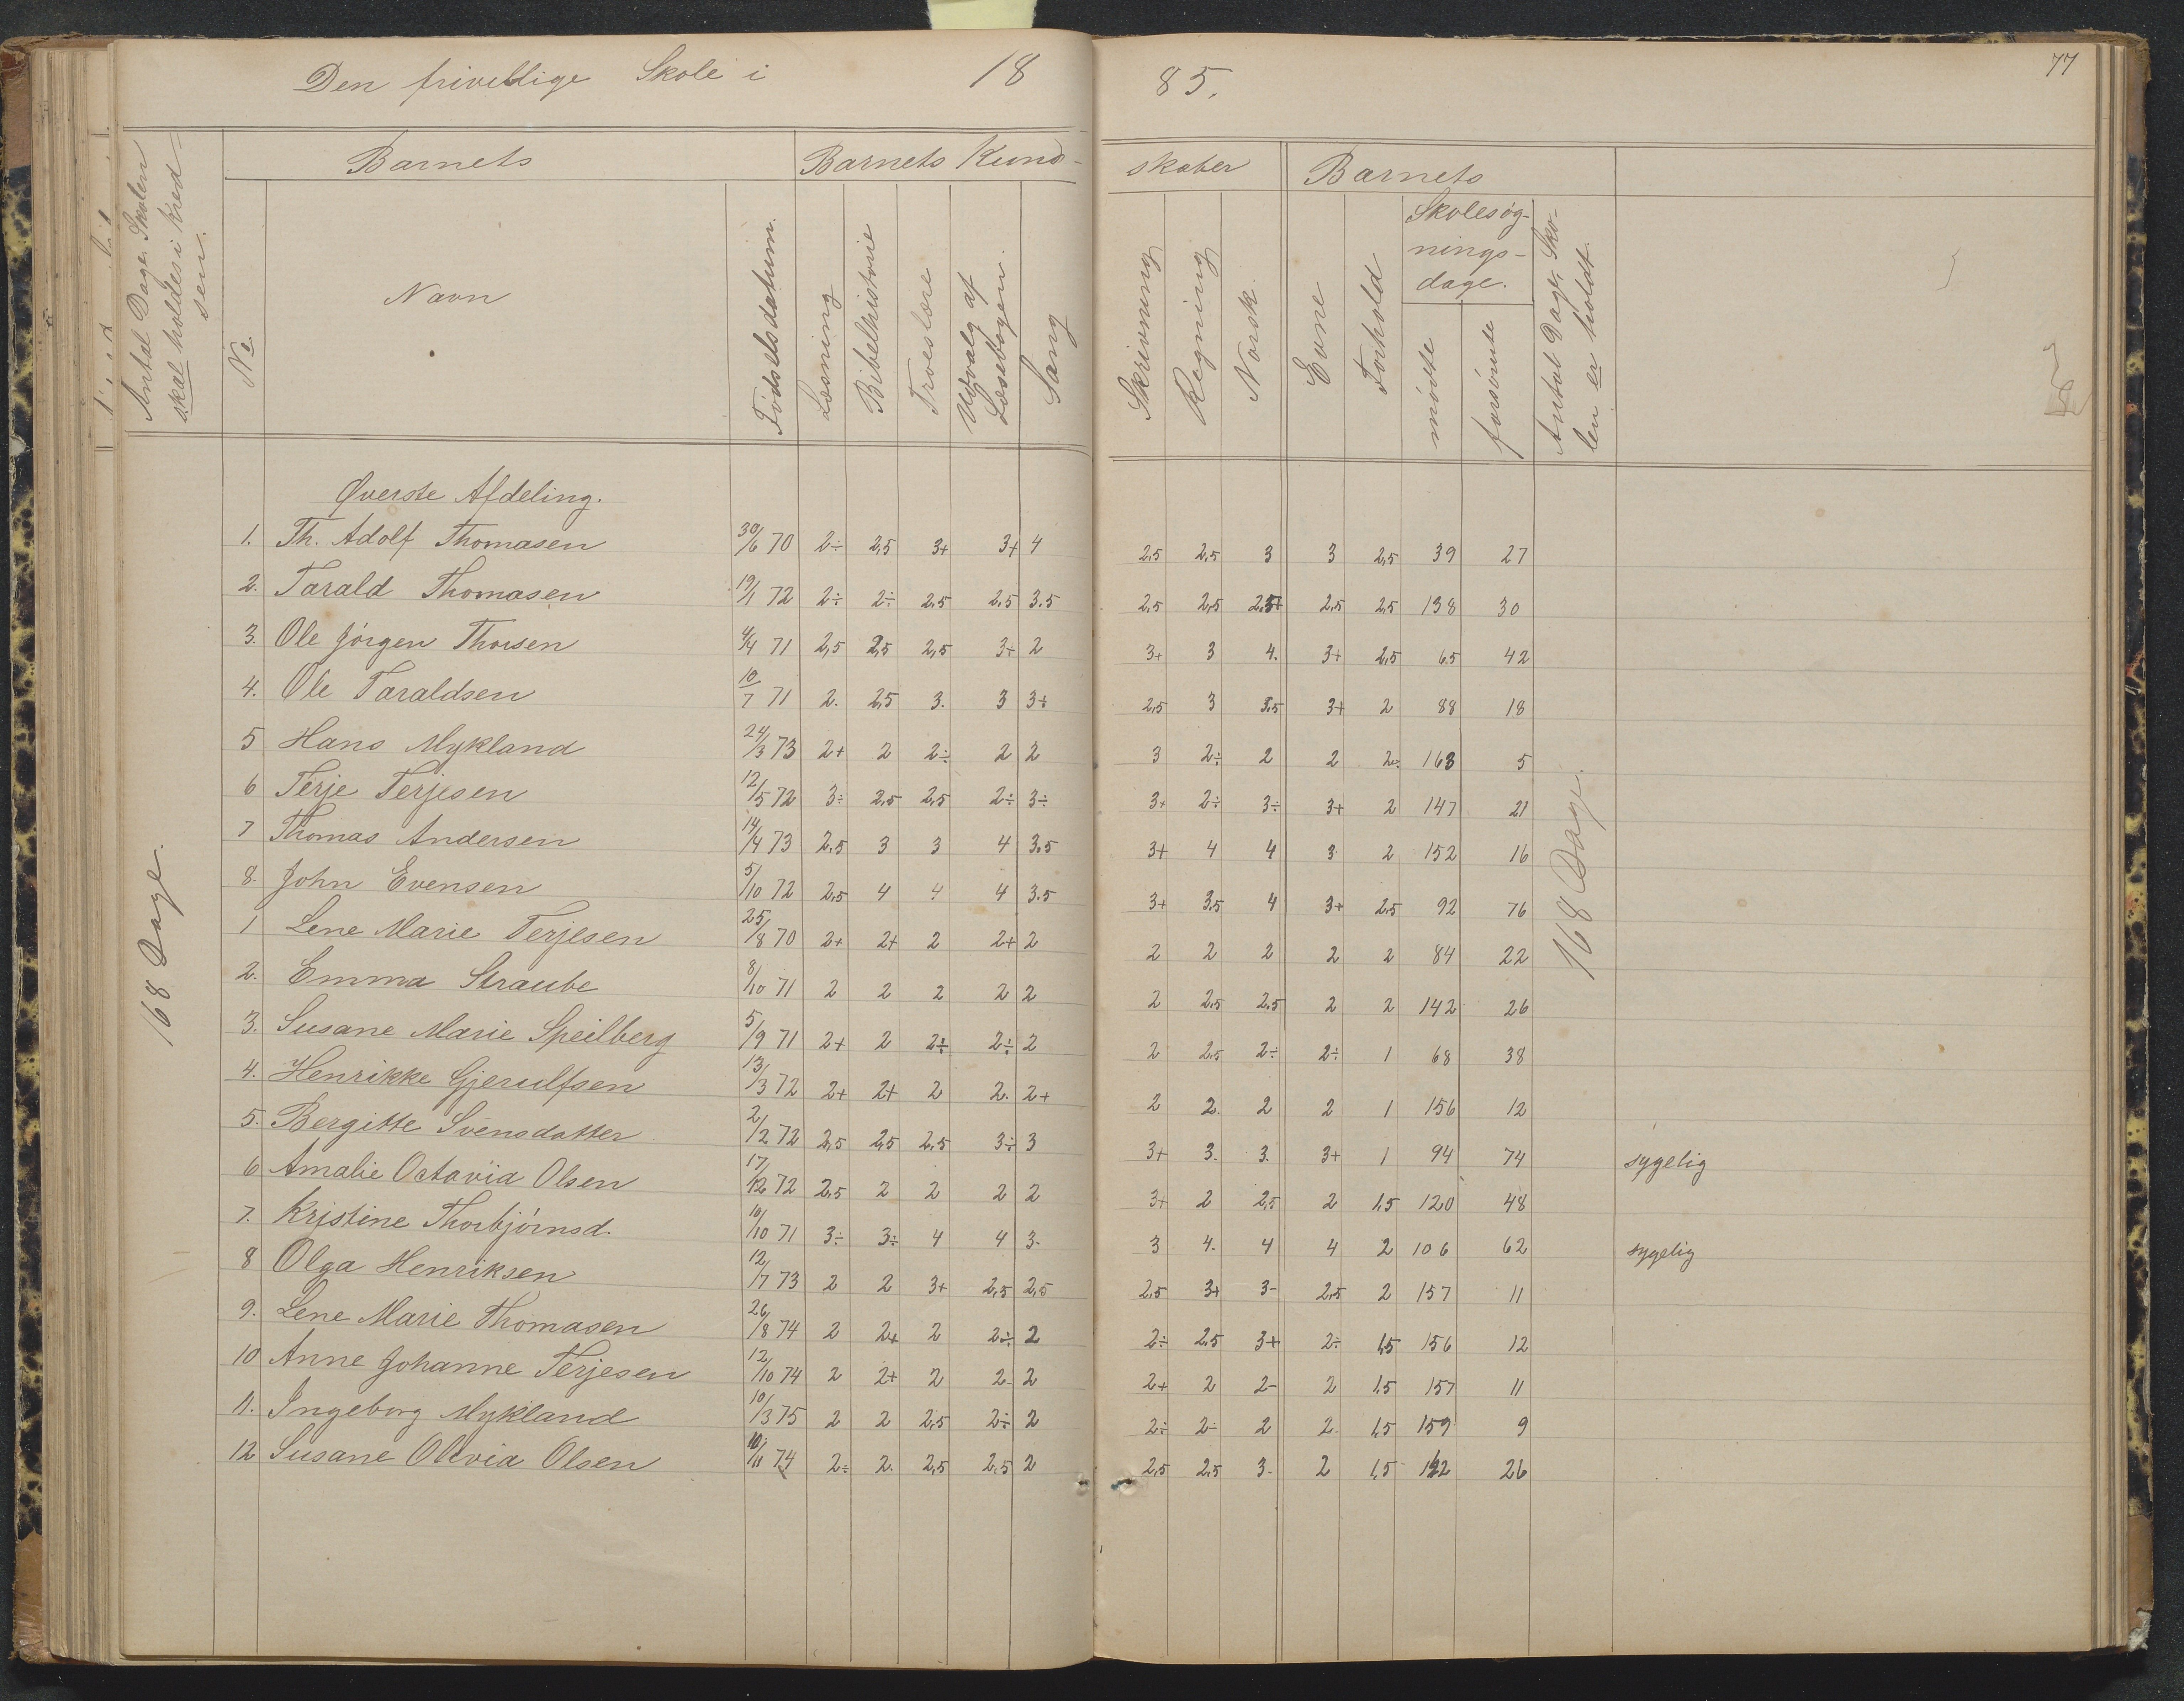 Den frivillige Skole i 1885.
77
Antal Dage, Skolen skal holdes i Kredsen.
No.
Barnets
Navn
Fødselsdatum.
Barnets Kundskaber
Læsning
Bibelhistorie
Troeslære
Udvalg af Læsebogen.
Sang
Skrivning
Regning
Norsk.
Barnets
Evne
Forhold
Skolesøgningsdage.
mødte
forsømte
Antal Dage, Skolen er holdt.
168 Dage.
168 Dage.
Øverste Afdeling.
1. Th. Adolf Thomasen 30/6 70 2÷ 2,5 3+ 3+ 4 2,5 2,5 3 3 2,5 39 27
2. Tarald Thomasen 19/1 72 2÷ 2÷ 2,5 2,5 3.5 2,5 2,5 2,5+ 2,5 2,5 138 30
3. Ole Jörgen Thorsen 4/4 71 2,5 2,5 2,5 3÷ 2 3+ 3 4. 3+ 2,5 65 42
4. Ole Taraldsen 10/7 71 2. 2,5 3. 3 3÷ 2,5 3 3.5 3+ 2 88 18
5 Hans Mykland 24/3 73 2+ 2 2÷ 2 2 3 2÷ 2 2 2÷ 163 5
6 Terje Terjesen 12/5 72 3÷ 2,5 2,5 2÷ 3÷ 3+ 2÷ 3÷ 3+ 2 147 21
7 Thomas Andersen 14/4 73 2,5 3 3 4 3.5 3+ 4 4 3 2 152 16
8. John Evensen 5/10 72 2,5 4 4 4 3.5 3+ 3.5 4 3+ 2,5 92 76
1 Lene Marie Terjesen 25/8 70 2+ 2+ 2 2+ 2 2 2 2 2 2 84 22
2. Emma Straube 8/10 71 2 2 2 2 2 2 2,5 2,5 2 2 142 26
3. Susane Marie Speilberg 5/9 71 2+ 2 2÷ 2÷ 2 2 2,5 2÷ 2÷ 1 68 38
4. Henrikke Gjerulfsen 13/3 72 2+ 2+ 2 2. 2+ 2 2. 2 2 1 156 12
5. Bergitte Svensdatter 2/2 72 2,5 2,5 2,5 3÷ 3 3+ 3. 3. 3+ 1 94 74 sygelig
6 Amalie Octavia Olsen 17/12 72 2,5 2 2 2 2 3+ 2 2,5 2 1,5 120 48
7. Kristine Thorbjörnsd. 10/10 71 3÷ 3÷ 4 4 3- 3 4. 4 4 2 106 62 sygelig
8 Olga Henriksen 12/7 73 2 2 3+ 2,5 2,5 2,5 3+ 3- 2,5 2 157 11
9. Lene Marie Thomasen 26/8 74 2 2+ 2 2÷ 2 2÷ 2,5 3+ 2÷ 1,5 156 12
10 Anne Johanne Terjesen 12/10 74 2 2+ 2 2- 2 2+ 2 2- 2 1,5 157 11
11. Ingeborg Mykland 10/3 75 2 2 2,5 2÷ 2 2÷ 2- 2 2. 1,5 159 9
12 Susane Olivia Olsen 10/11 74 2÷ 2. 2,5 2,5 2 2,5 2,5 3- 2 1,5 142 26